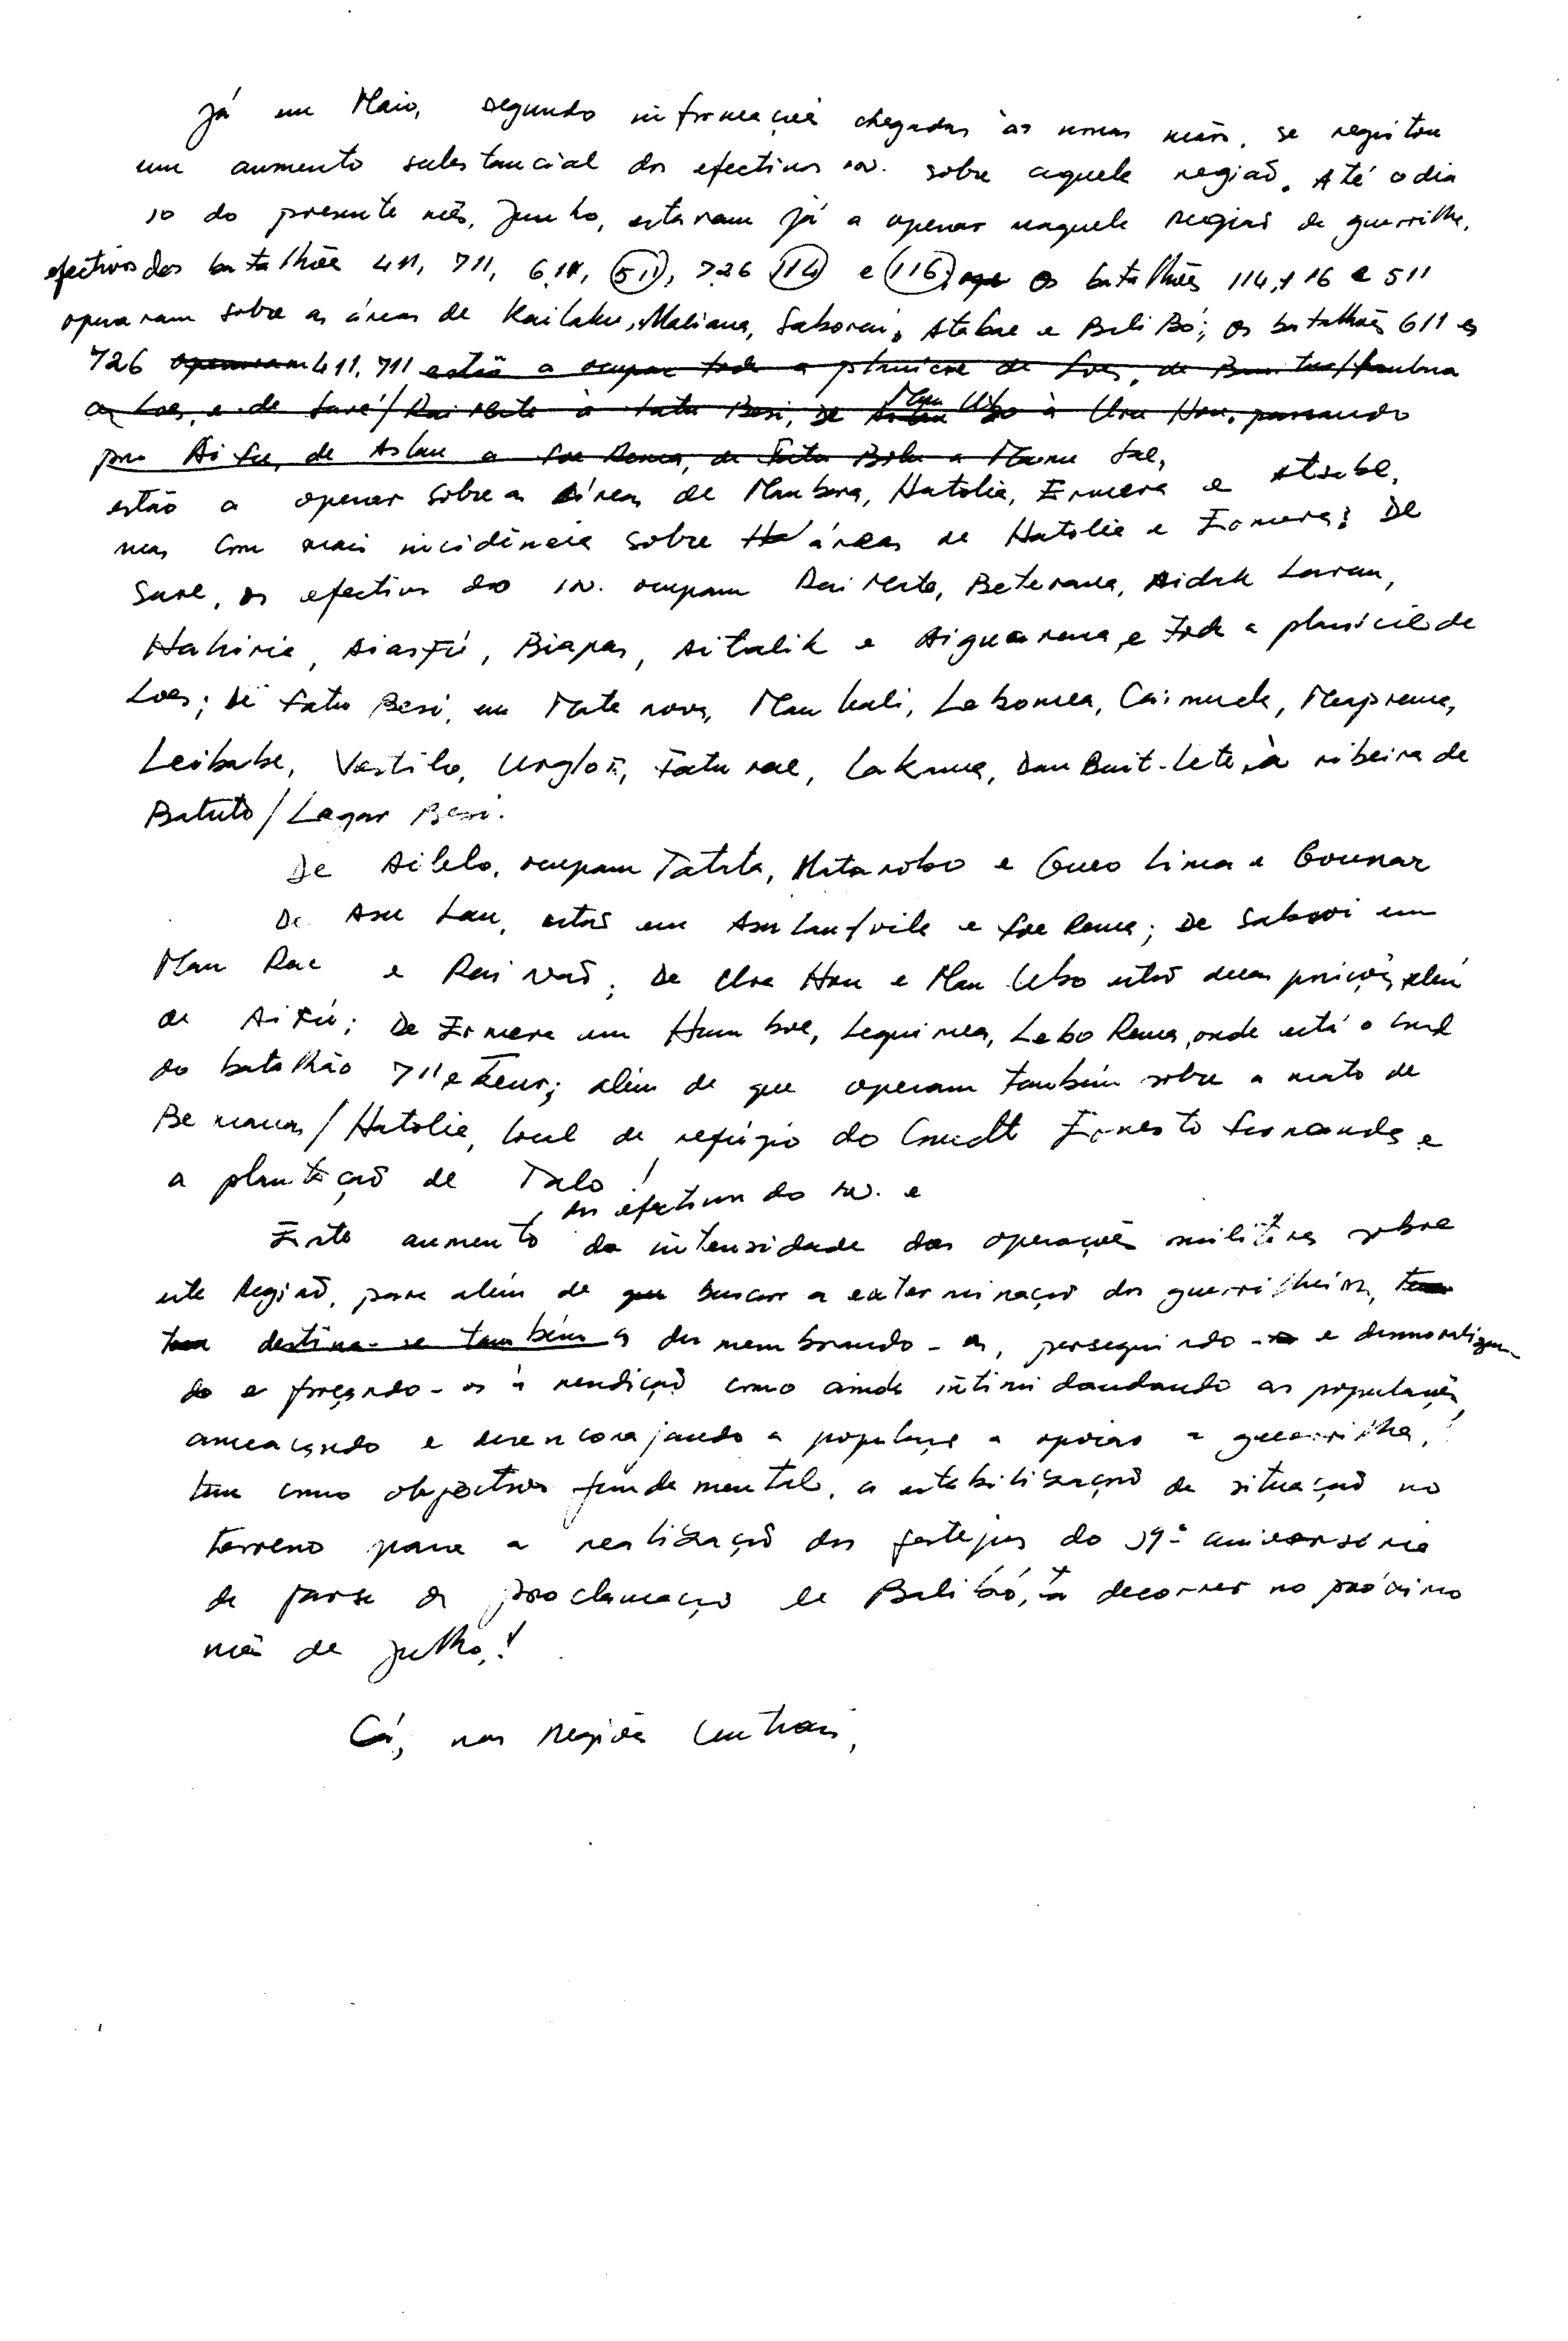 Já em Maio, segundo informações chegadas às nossas mãos, se registou
um aumento substancial dos efectivos in. sobre aquela região. Até o dia
10 do presente mês, Junho, estavam já a operar naquela Região de guerrilha,
efectivos dos batalhões 411, 711, 611, 511, 726 114 e 116; Os batalhões 114, 116 e 511
operaram sobre as áreas de Kailaku, Maliana, Saborai, Atabae e Balibó; Os batalhões 611 e
726 operaram 411, 711 estão a ocupar toda a planície de Loes, de
a Loes, e de Sare/Rai Mate à Fatu Besi, De Mau Ubo à Ura Hou, passando
por Ai Fu, de Aslau a Foe Rema, de Fatu Bolu a Manu Sae,
estão a operar sobre as áreas de Maubara, Hatolia, Ermera e Atsabe,
mas com mais incidência sobre áreas de Hatolia e Ermera; De
Sare, os efectivos do in. ocupam Rai Mate, Beterama, Aidak Laran,
Hahiria, Aiasfú, Biapas, Aitalik e e toda a planície de
Loes; De Fatu Besi, em Mate nova, Mau kali, Lebomea, Caimuda,
Leibabe, Vastilo, Urgloi, Fatu rae, Lakmea, Dau Buit-Lete, à ribeira de
Batuto/Lagar Besi.
De Ailelo, ocupam Tatata, Matarobo e Guco Lima e Gounar
De Asu Lau, estão em Asu Lau/vila e Foe Rema; De Saboroi em
Mau Rae e Rai ; De Ura Hou e Mau Ubo estão duas posições, além
de Ai Fú; De Ermera em Humboe, Lequimea, Lebo Rema, onde está o cmd
do batalhão 711 e ; além de que operam também sobre a mato de
Bemauas/Hatolia, local de refúgio do Cmdt Ernesto Fernandes e
a plantação de Talo!
os efectivos do in. e
Este aumento da intensidade das operações militares sobre
esta Região, para além de que buscar a exterminação dos guerrilheiros,
destina-se também a desmembrando-os, perseguindo-os e desmoralizan-
do e forçando-os à rendição como ainda intimidandando as populações,
ameaçando e desencorajando a população a apoiar a guerrilha,!
tem como objectivos fundamental, a estabilização da situação no
terreno para a realização dos festejos do 19º aniversário
da farsa da proclamação de Balibó, a decorrer no próximo
mês de Julho,!
Cá, nas Regiões Centrais,